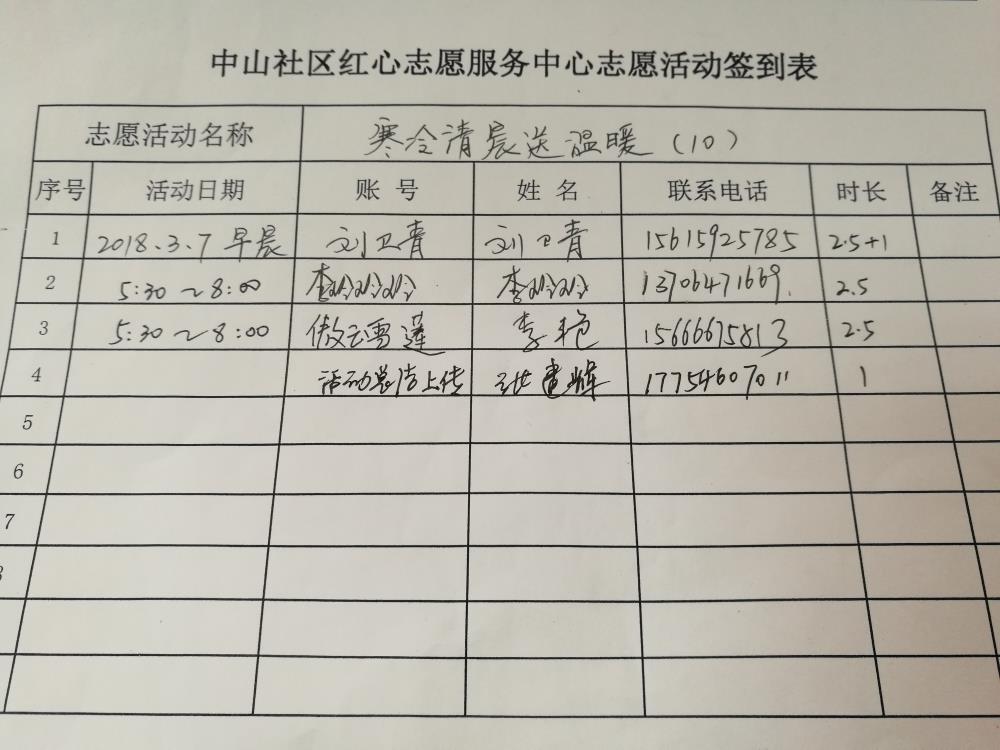 中山社区红心志愿服务中心志愿活动签到表
志愿活动名称 寒冷清晨送温暖（10）
序号 活动日期 账号 姓名 联系电话 时长 备注
1 2018.3.7 早晨 刘卫青 刘卫青 15615925785 2.5+1
2 5:30～8:00 李玲玲 李玲玲 13706471669. 2.5
3 5:30～8:00 傲云雪莲 李艳 15666675813 2.5
4 活动总结上传 建辉 17754607011 1
5
6
7